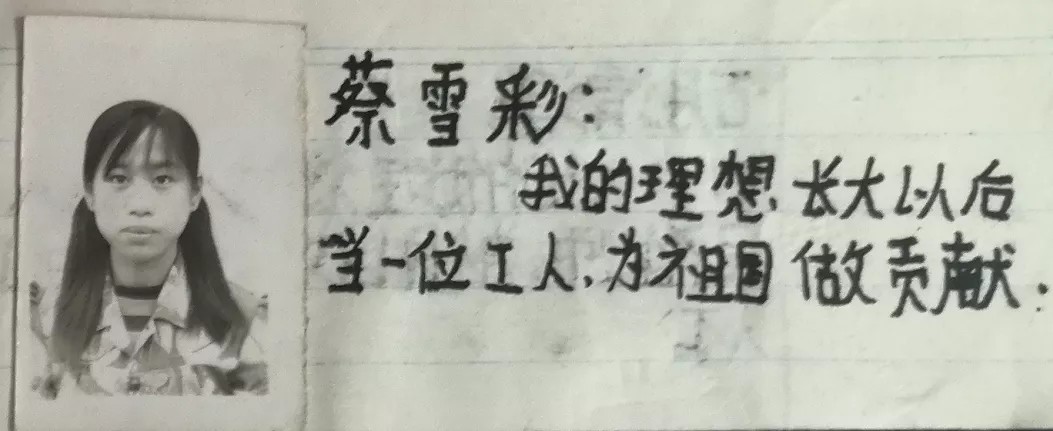 蔡雪彩:
我的理想长大以后
当一位工人,为祖国做贡献.